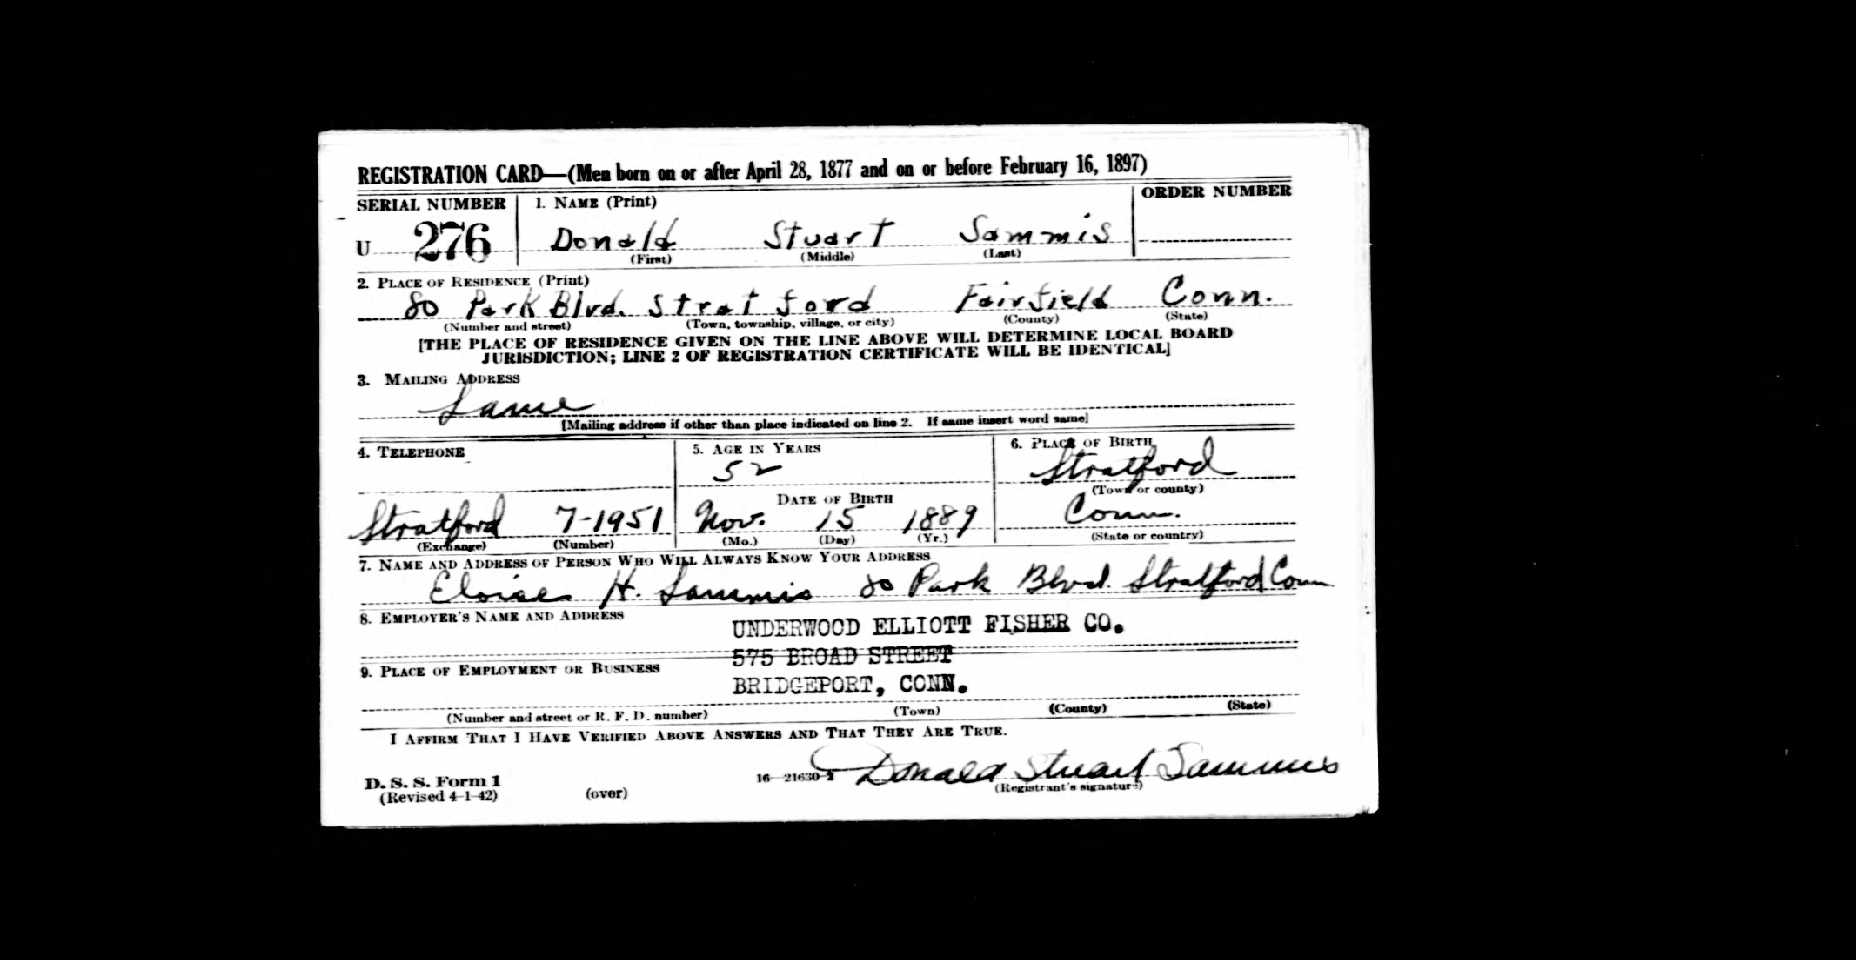 REGISTRATION CARD—(Men born on or after April 28, 1877 and on or before February 16, 1897)
SERIAL NUMBER 1. NAME (Print) ORDER NUMBER
U 276 Donald Stuart Sammis
(First) (Middle) (Last)
2. PLACE OF RESIDENCE (Print)
80 Park Blvd. Stratford Fairfield Conn.
(Number and street) (Town, township, village, or city) (County) (State)
[THE PLACE OF RESIDENCE GIVEN ON THE LINE ABOVE WILL DETERMINE LOCAL BOARD
JURISDICTION; LINE 2 OF REGISTRATION CERTIFICATE WILL BE IDENTICAL]
3. MAILING ADDRESS
Same
[Mailing address if other than place indicated on line 2. If same insert word same]
4. TELEPHONE 5. AGE IN YEARS 6. PLACE OF BIRTH
52 Stratford
DATE OF BIRTH (Town or county)
Stratford 7-1951 Nov. 15 1889 Conn.
(Exchange) (Number) (Mo.) (Day) (Yr.) (State or country)
7. NAME AND ADDRESS OF PERSON WHO WILL ALWAYS KNOW YOUR ADDRESS
Eloise H. Sammis 80 Park Blvd. Stratford Conn
8. EMPLOYER'S NAME AND ADDRESS
UNDERWOOD ELLIOTT FISHER CO.
575 BROAD STREET
9. PLACE OF EMPLOYMENT OR BUSINESS
BRIDGEPORT, CONN.
(Number and street or R. F. D. number) (Town) (County) (State)
I AFFIRM THAT I HAVE VERIFIED ABOVE ANSWERS AND THAT THEY ARE TRUE.
Donald Stuart Sammis
D. S. S. Form 1 16—21630-2 (Registrant's signature)
(Revised 4-1-42) (over)